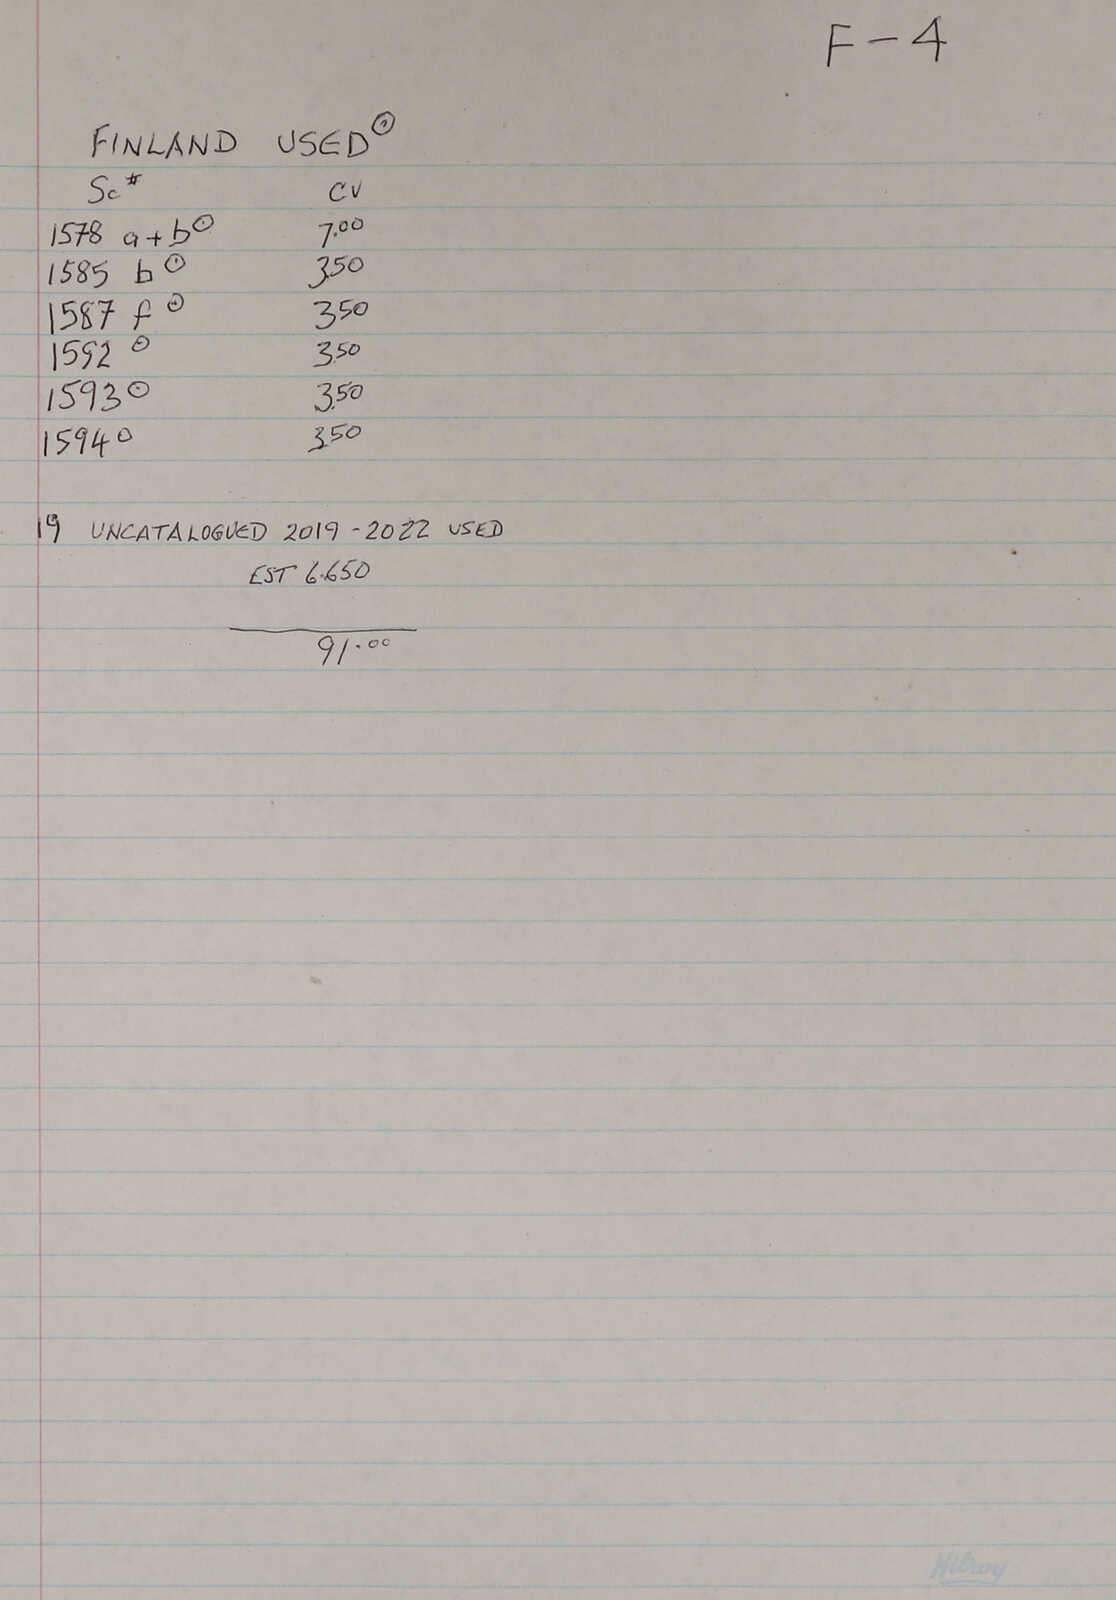 F-4
FINLAND USED ⊙
Sc # CV
1578 a+b ⊙ 7.00
1585 b ⊙ 3.50
1587 f ⊙ 3.50
1592 ⊙ 3.50
1593 ⊙ 3.50
1594 ⊙ 3.50
19 UNCATALOGUED 2019-2022 USED
EST 66.50
91.00
Hilroy